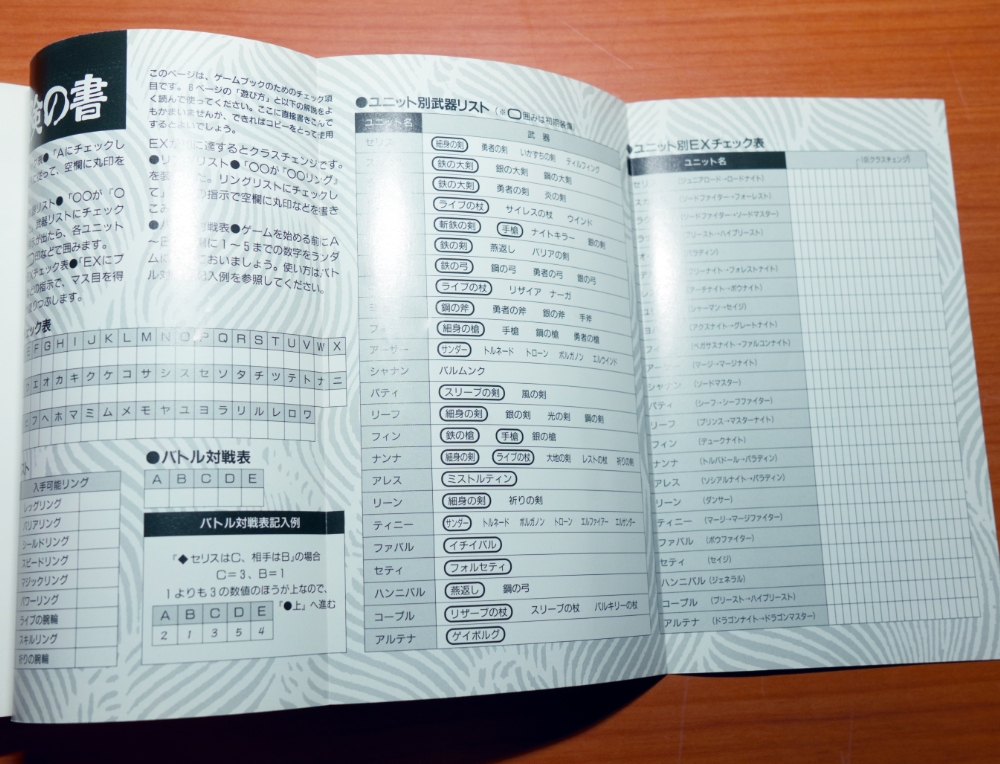 険の書
このページは、ゲームブックのためのチェック項
目です。6ページの「遊び方」と以下の解説をよ
く読んで使ってください。ここに直接書きこんで
もかまいませんが、できればコピーをとって使用
するとよいでしょう。
表●「Aにチェックし
って、空欄に丸印を
リスト●「○○が「○
武器リストにチェック
が出たら、各ユニット
印などで囲みます。
チェック表●「EXにプ
の指示で、マス目を得
りつぶします。
EXが
に達するとクラスチェンジです。
●リングリスト●「○○が「○○リング」
を
た。リングリストにチェックし
て」
の指示で空欄に丸印などを書き
こみ
●バトル対戦表●ゲームを始める前にA
～E
欄に1～5までの数字をランダ
ムに
ておいましょう。使い方はバト
ル対
記入例を参照してください。
ェック表
F G H I J K L M N O P Q R S T U V W X
エ オ カ キ ク ケ コ サ シ ス セ ソ タ チ ツ テ ト ナ ニ
フ ヘ ホ マ ミ ム メ モ ヤ ユ ヨ ラ リ ル レ ロ ワ
スト
入手可能リング
レッグリング
バリアリング
シールドリング
スピードリング
マジックリング
パワーリング
ライブの腕輪
スキルリング
祈りの腕輪
●バトル対戦表
A B C D E
バトル対戦表記入例
「◆セリスはC、相手はB」の場合
C＝3、B＝1
1よりも3の数値のほうが上なので、
「●上」へ進む
A B C D E
2 1 3 5 4
●ユニット別武器リスト（※ 囲みは初期装備）
ユニット名 武器
セリス 細身の剣 勇者の剣 いかずちの剣 ティルフィング
鉄の大剣 銀の大剣 鋼の大剣
鉄の大剣 勇者の剣 炎の剣
ライブの杖 サイレスの杖 ウインド
斬鉄の剣 手槍 ナイトキラー 銀の剣
鉄の剣 燕返し バリアの剣
鉄の弓 鋼の弓 勇者の弓 銀の弓
ライブの杖 リザイア ナーガ
鋼の斧 勇者の斧 銀の斧 手斧
フィー 細身の槍 手槍 鋼の槍 勇者の槍
アーサー サンダー トルネード トローン ボルガノン エルウインド
シャナン バルムンク
パティ スリープの剣 風の剣
リーフ 細身の剣 銀の剣 光の剣 鋼の剣
フィン 鉄の槍 手槍 銀の槍
ナンナ 細身の剣 ライブの杖 大地の剣 レストの杖 祈りの剣
アレス ミストルティン
リーン 細身の剣 祈りの剣
ティニー サンダー トルネード ボルガノン トローン エルファイアー エルサンダー
ファバル イチイバル
セティ フォルセティ
ハンニバル 燕返し 鋼の弓
コープル リザーブの杖 スリープの杖 バルキリーの杖
アルテナ ゲイボルグ
●ユニット別EXチェック表
ユニット名 （※クラスチェンジ）
セリス （ジュニアロード→ロードナイト）
（ソードファイター→フォーレスト）
（ソードファイター→ソードマスター）
（プリースト→ハイプリースト）
（パラディン）
（フリーナイト→フォレストナイト）
（アーチナイト→ボウナイト）
（シャーマン→セイジ）
（アクスナイト→グレートナイト）
（ペガサスナイト→ファルコンナイト）
アーサー （マージ→マージナイト）
シャナン （ソードマスター）
パティ （シーフ→シーフファイター）
リーフ （プリンス→マスターナイト）
フィン （デュークナイト）
ナンナ （トルバドール→パラディン）
アレス （ソシアルナイト→パラディン）
リーン （ダンサー）
ティニー （マージ→マージファイター）
ファバル （ボウファイター）
セティ （セイジ）
ハンニバル （ジェネラル）
コープル （プリースト→ハイプリースト）
アルテナ （ドラゴンナイト→ドラゴンマスター）